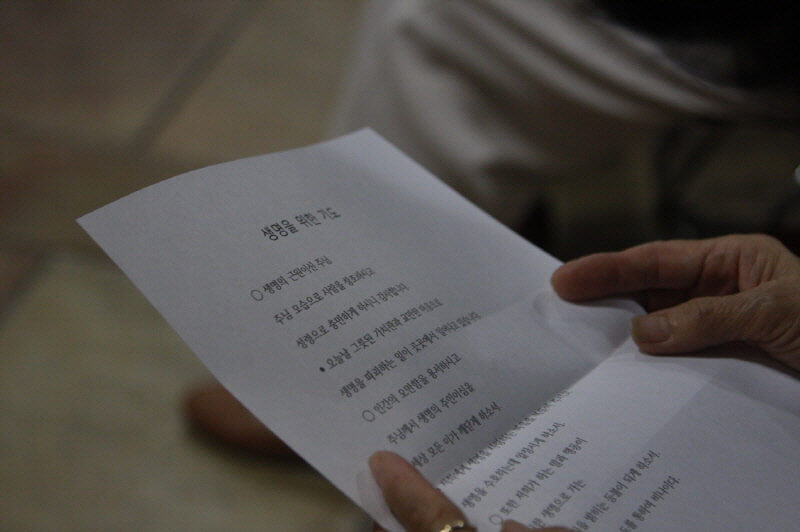 생명을 위한 기도
○ 생명의 근원이신 주님
주님 모습으로 사람을 창조하시고
성령으로 충만하게 하시니 감사합니다
● 오늘날 그릇된 가치관과 교만한 마음으로
생명을 파괴하는 일이 곳곳에서 일어나고 있습니다
○ 인간의 오만함을 용서하시고
주님께서 생명의 주인이심을
세상 모든 이가 깨닫게 하소서
생명을 수호하는데 앞장서게 하소서.
○ 또한 저희가 하는 말과 행동이
생명으로 가는
발하는 등불이 되게 하소서.
통하여 비나이다.